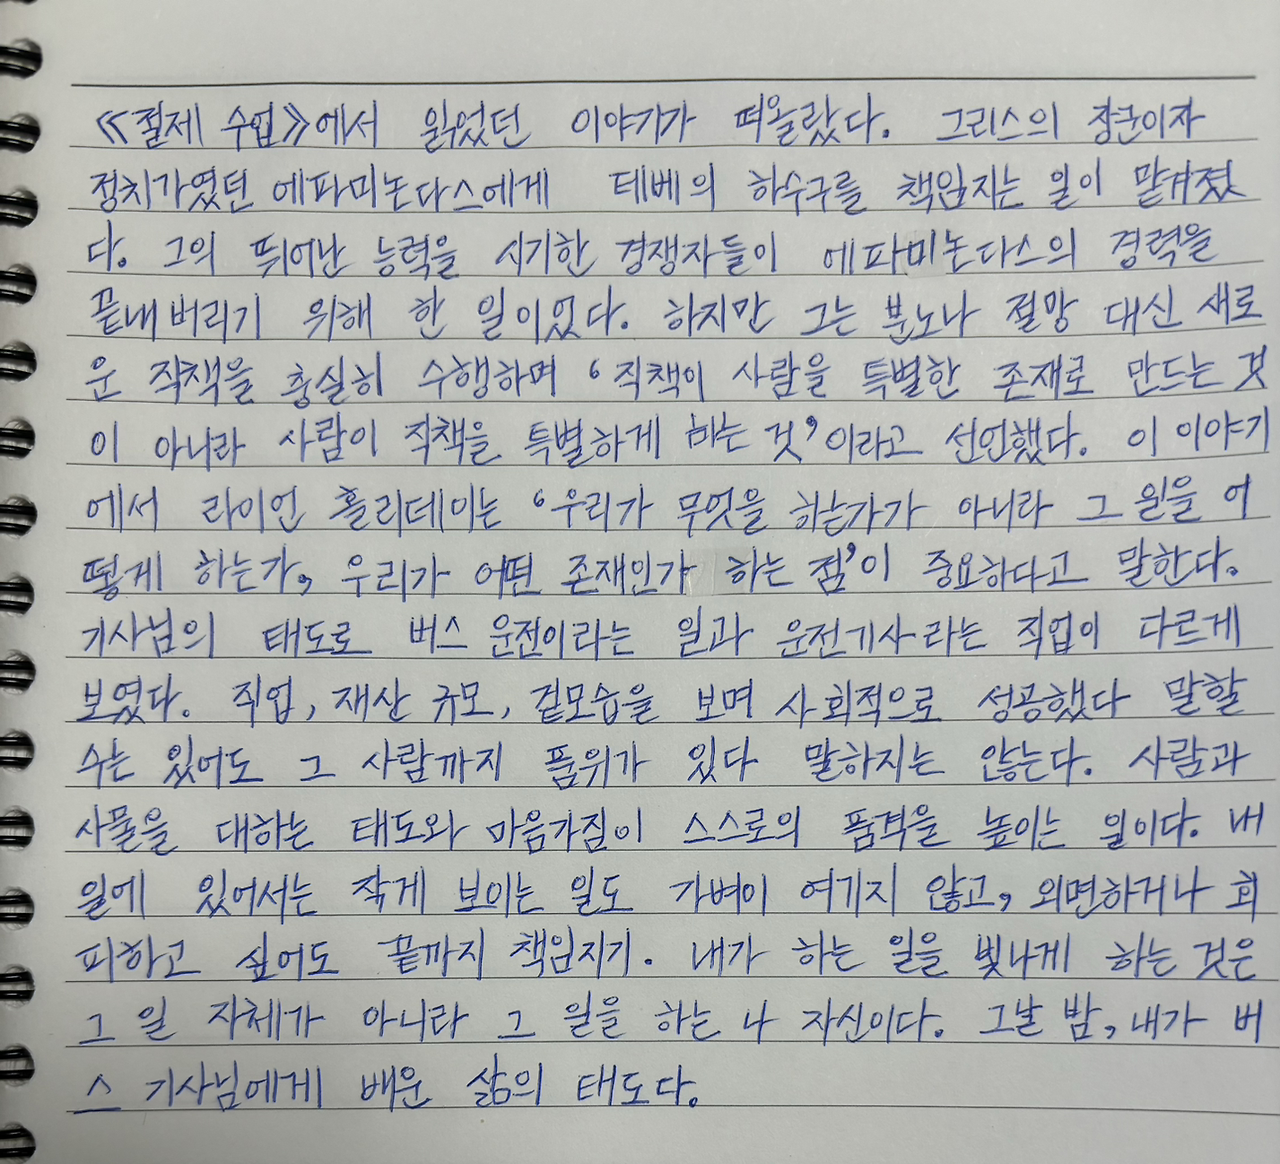 《절제 수업》에서 읽었던 이야기가 떠올랐다. 그리스의 장군이자
정치가였던 에파미논다스에게 테베의 하수구를 책임지는 일이 맡겨졌
다. 그의 뛰어난 능력을 시기한 경쟁자들이 에파미논다스의 경력을
끝내버리기 위해 한 일이었다. 하지만 그는 분노나 절망 대신 새로
운 직책을 충실히 수행하며 ‘직책이 사람을 특별한 존재로 만드는 것
이 아니라 사람이 직책을 특별하게 하는 것’이라고 선언했다. 이 이야기
에서 라이언 홀리데이는 ‘우리가 무엇을 하는가가 아니라 그 일을 어
떻게 하는가, 우리가 어떤 존재인가 하는 점’이 중요하다고 말한다.
기사님의 태도로 버스 운전이라는 일과 운전기사라는 직업이 다르게
보였다. 직업, 재산 규모, 겉모습을 보며 사회적으로 성공했다 말할
수는 있어도 그 사람까지 품위가 있다 말하지는 않는다. 사람과
사물을 대하는 태도와 마음가짐이 스스로의 품격을 높이는 일이다. 내
일에 있어서는 작게 보이는 일도 가벼이 여기지 않고, 외면하거나 회
피하고 싶어도 끝까지 책임지기. 내가 하는 일을 빛나게 하는 것은
그 일 자체가 아니라 그 일을 하는 나 자신이다. 그날 밤, 내가 버
스 기사님에게 배운 삶의 태도다.